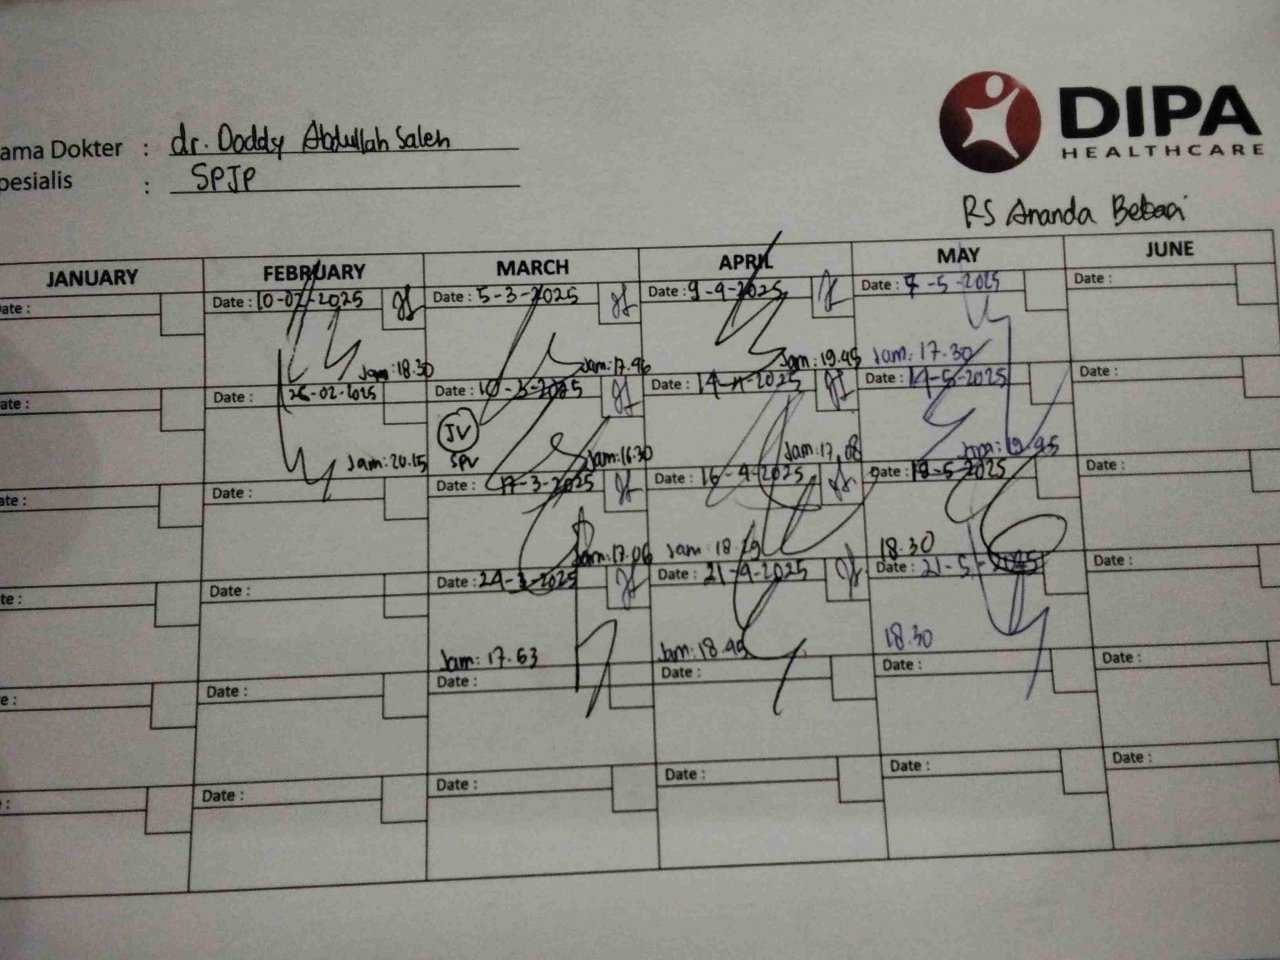 DIPA
HEALTHCARE
ama Dokter : dr. Doddy Abdullah Saleh
pesialis : SPJP
RS Ananda Bekasi
JANUARY FEBRUARY MARCH APRIL MAY JUNE
ate: Date: 10-02-2025 Date: 5-3-2025 Date: 9-4-2025 Date: 7-5-2025 Date:
Jam: 18.30 Jam: 17.46 Jam: 19.45 Jam: 17.30
ate: Date: 26-02-2025 Date: 10-3-2025 Date: 14-4-2025 Date: 14-5-2025 Date:
JV
SPV
Jam: 20.15 Jam: 16.30 Jam: 17.08 Jam: 19.45
ate: Date: Date: 17-3-2025 Date: 16-4-2025 Date: 19-5-2025 Date:
Jam: 17.06 Jam: 18.29 18.30
te: Date: Date: 24-3-2025 Date: 21-4-2025 Date: 21-5-2025 Date:
Jam: 17.53 Jam: 18.45 18.30
e: Date: Date: Date: Date: Date:
: Date: Date: Date: Date: Date: